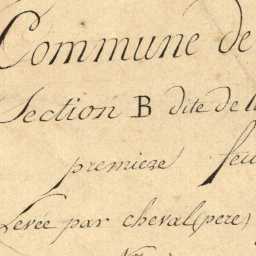 Commune de
Section B dite de
premiere
Levée par cheval (pere)